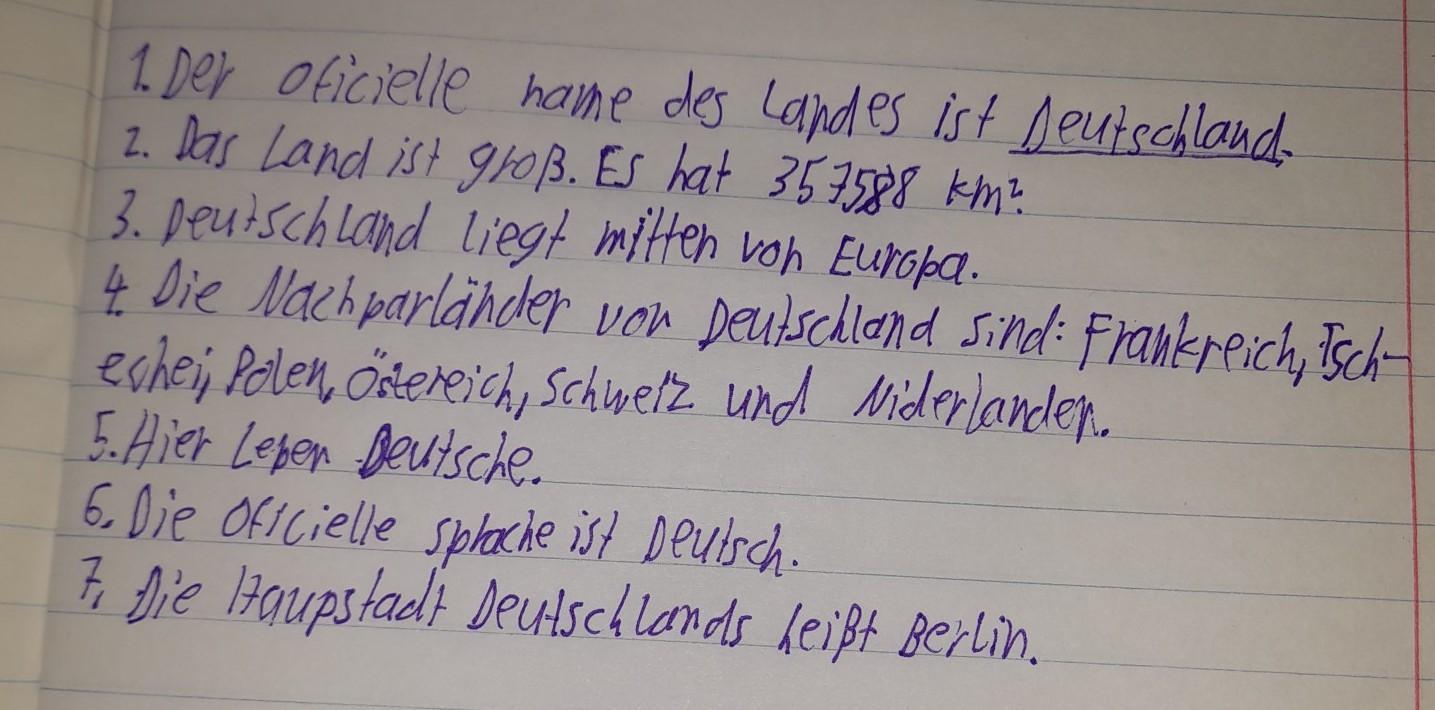 1. Der oficielle name des Landes ist Deutschland.
2. Das Land ist groß. Es hat 357588 km².
3. Deutschland liegt mitten von Europa.
4. Die Nachparländer von Deutschland sind: Frankreich, Tsch-
echei, Polen, Östereich, Schweiz und Niderlanden.
5. Hier Leben Deutsche.
6. Die Oficielle sprache ist Deutsch.
7. Die Haupstadt Deutschlands heißt Berlin.